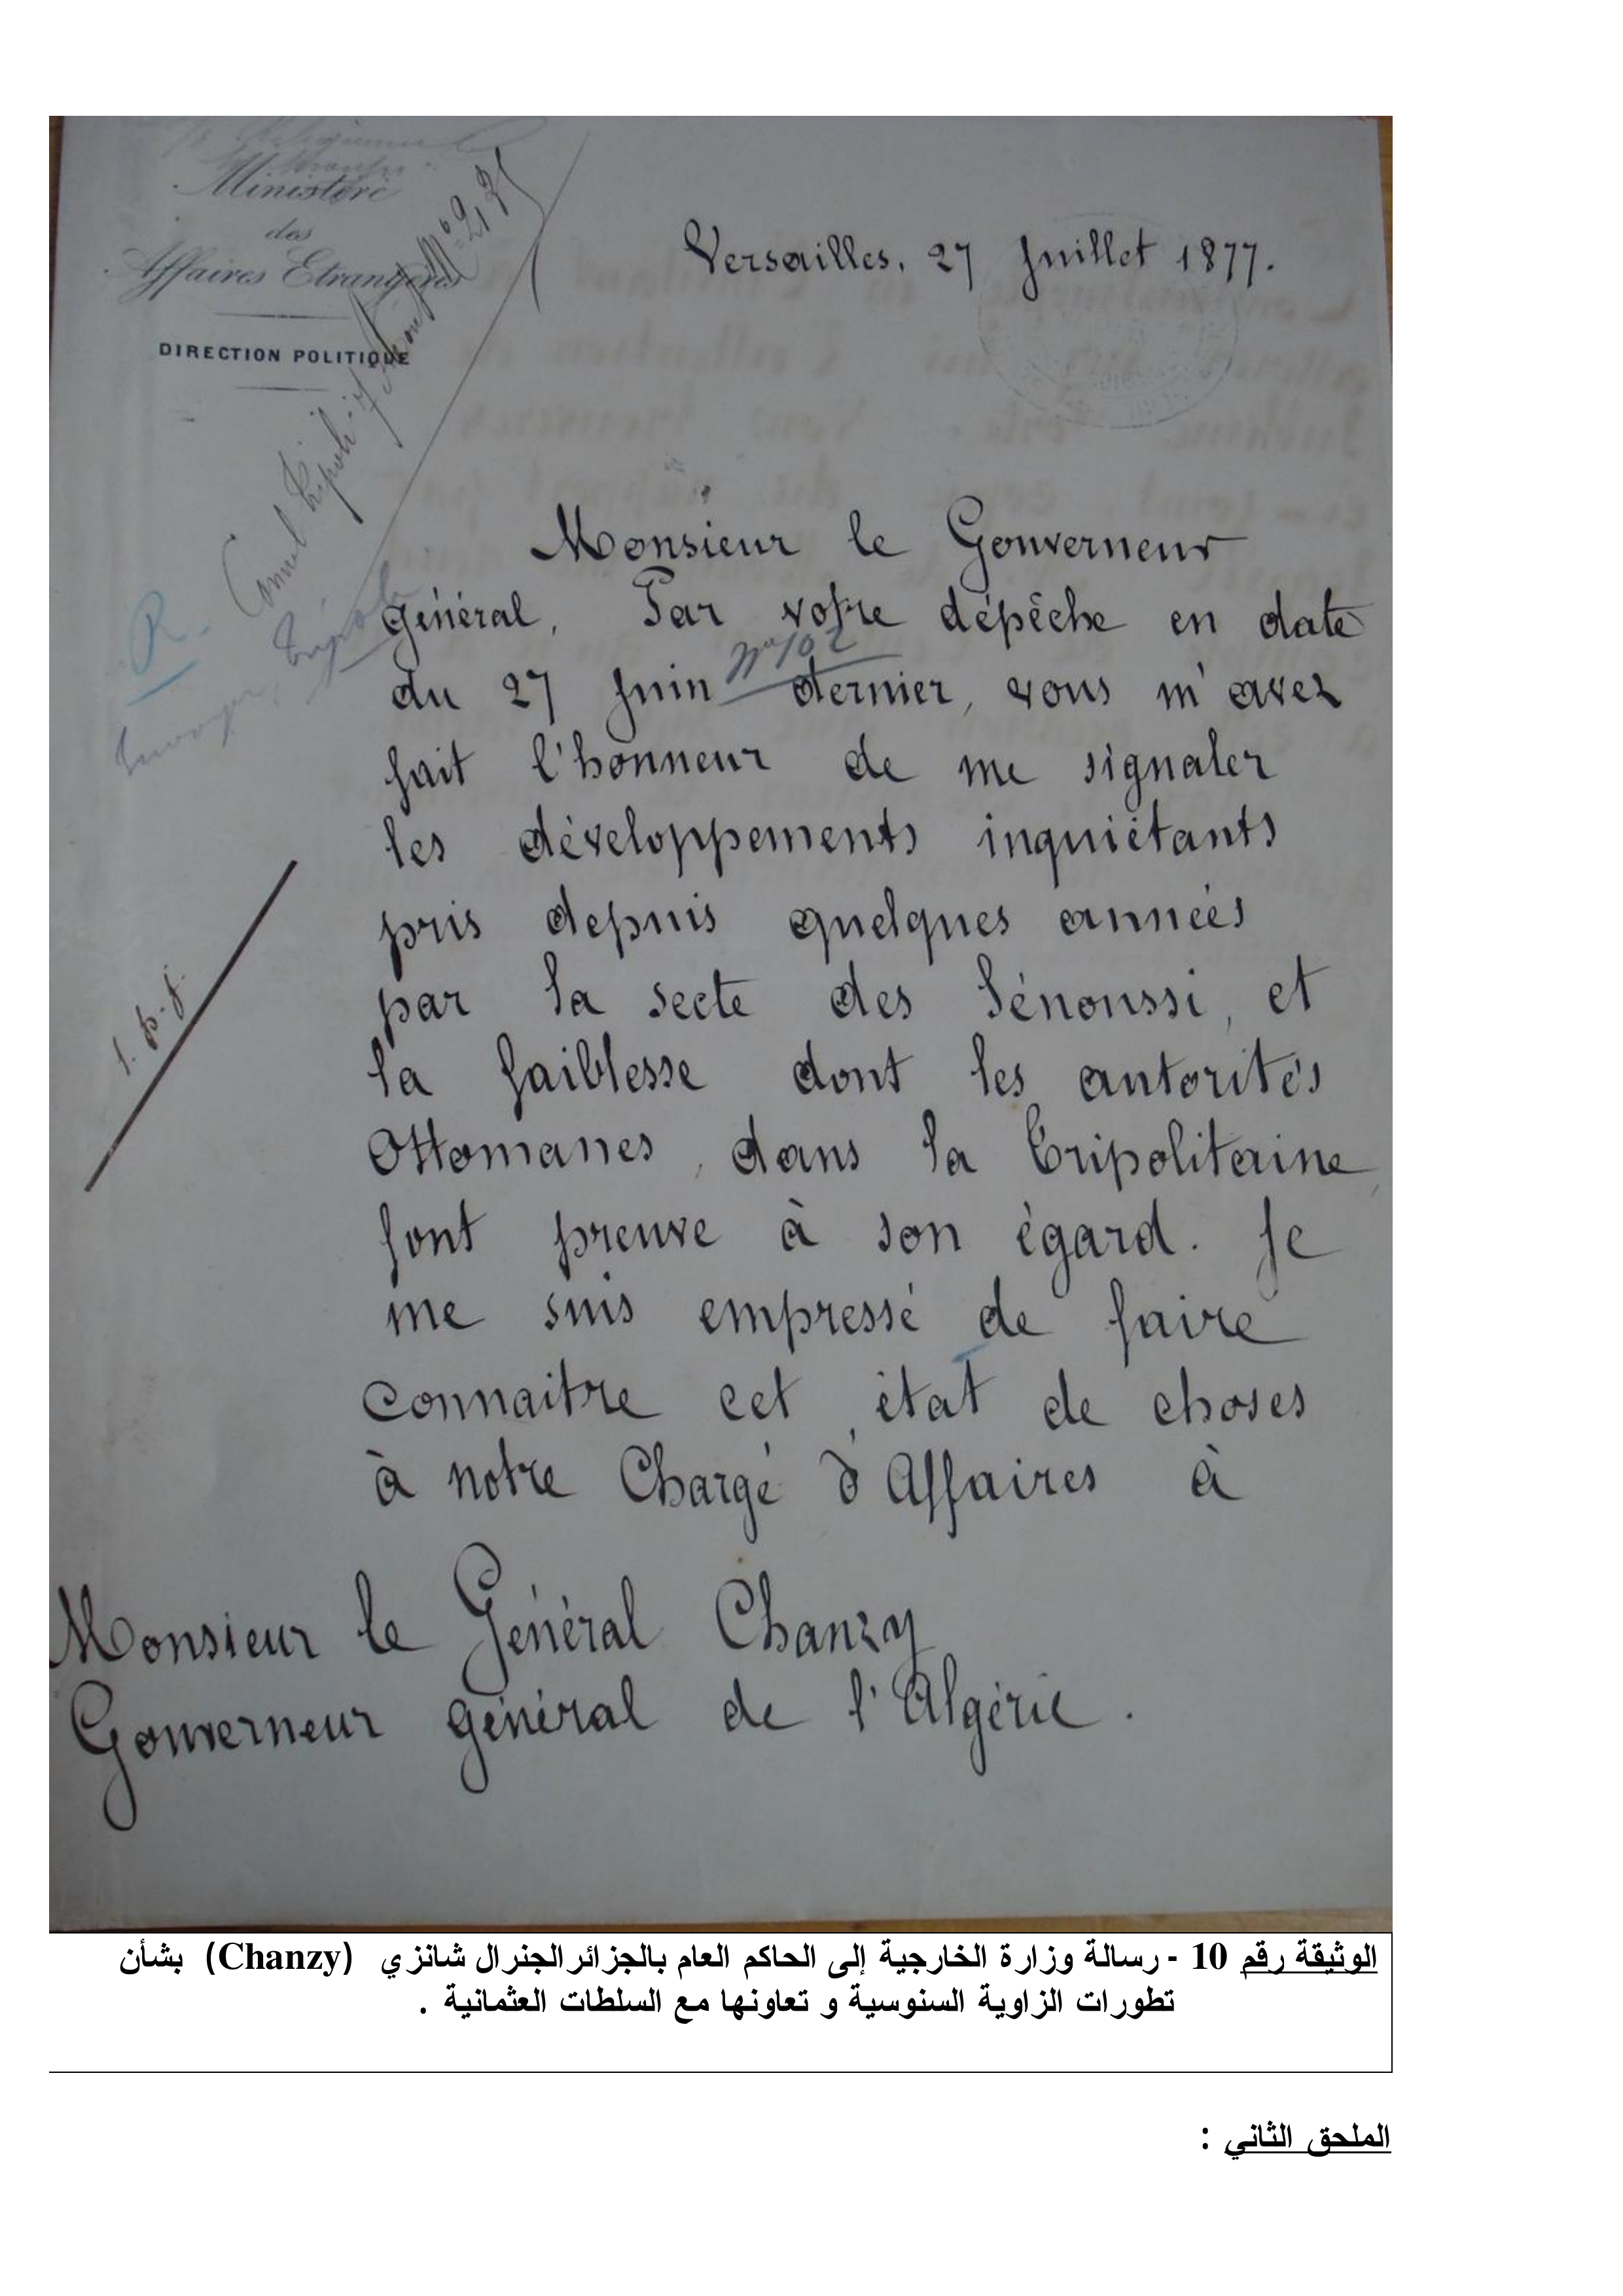 Ministère
des
Affaires Etrangères
DIRECTION POLITIQUE
Versailles, 27 Juillet 1877.
Consul Tripoli 7 Août N° 2,2
R.
Tripoli
Monsieur le Gouverneur
général, Par votre dépêche en date
du 27 Juin n° 102 dernier, vous m'avez
fait l'honneur de me signaler
les développements inquiétants
pris depuis quelques années
par la secte des Sénoussi, et
la faiblesse dont les autorités
Ottomanes, dans la Tripolitaine,
font preuve à son égard. Je
me suis empressé de faire
connaitre cet état de choses
à notre Chargé d'Affaires à
Monsieur le Général Chanzy
Gouverneur général de l'Algérie.
الوثيقة رقم 10 - رسالة وزارة الخارجية إلى الحاكم العام بالجزائرالجنرال شانزي (Chanzy) بشأن
تطورات الزاوية السنوسية و تعاونها مع السلطات العثمانية .
الملحق الثاني :